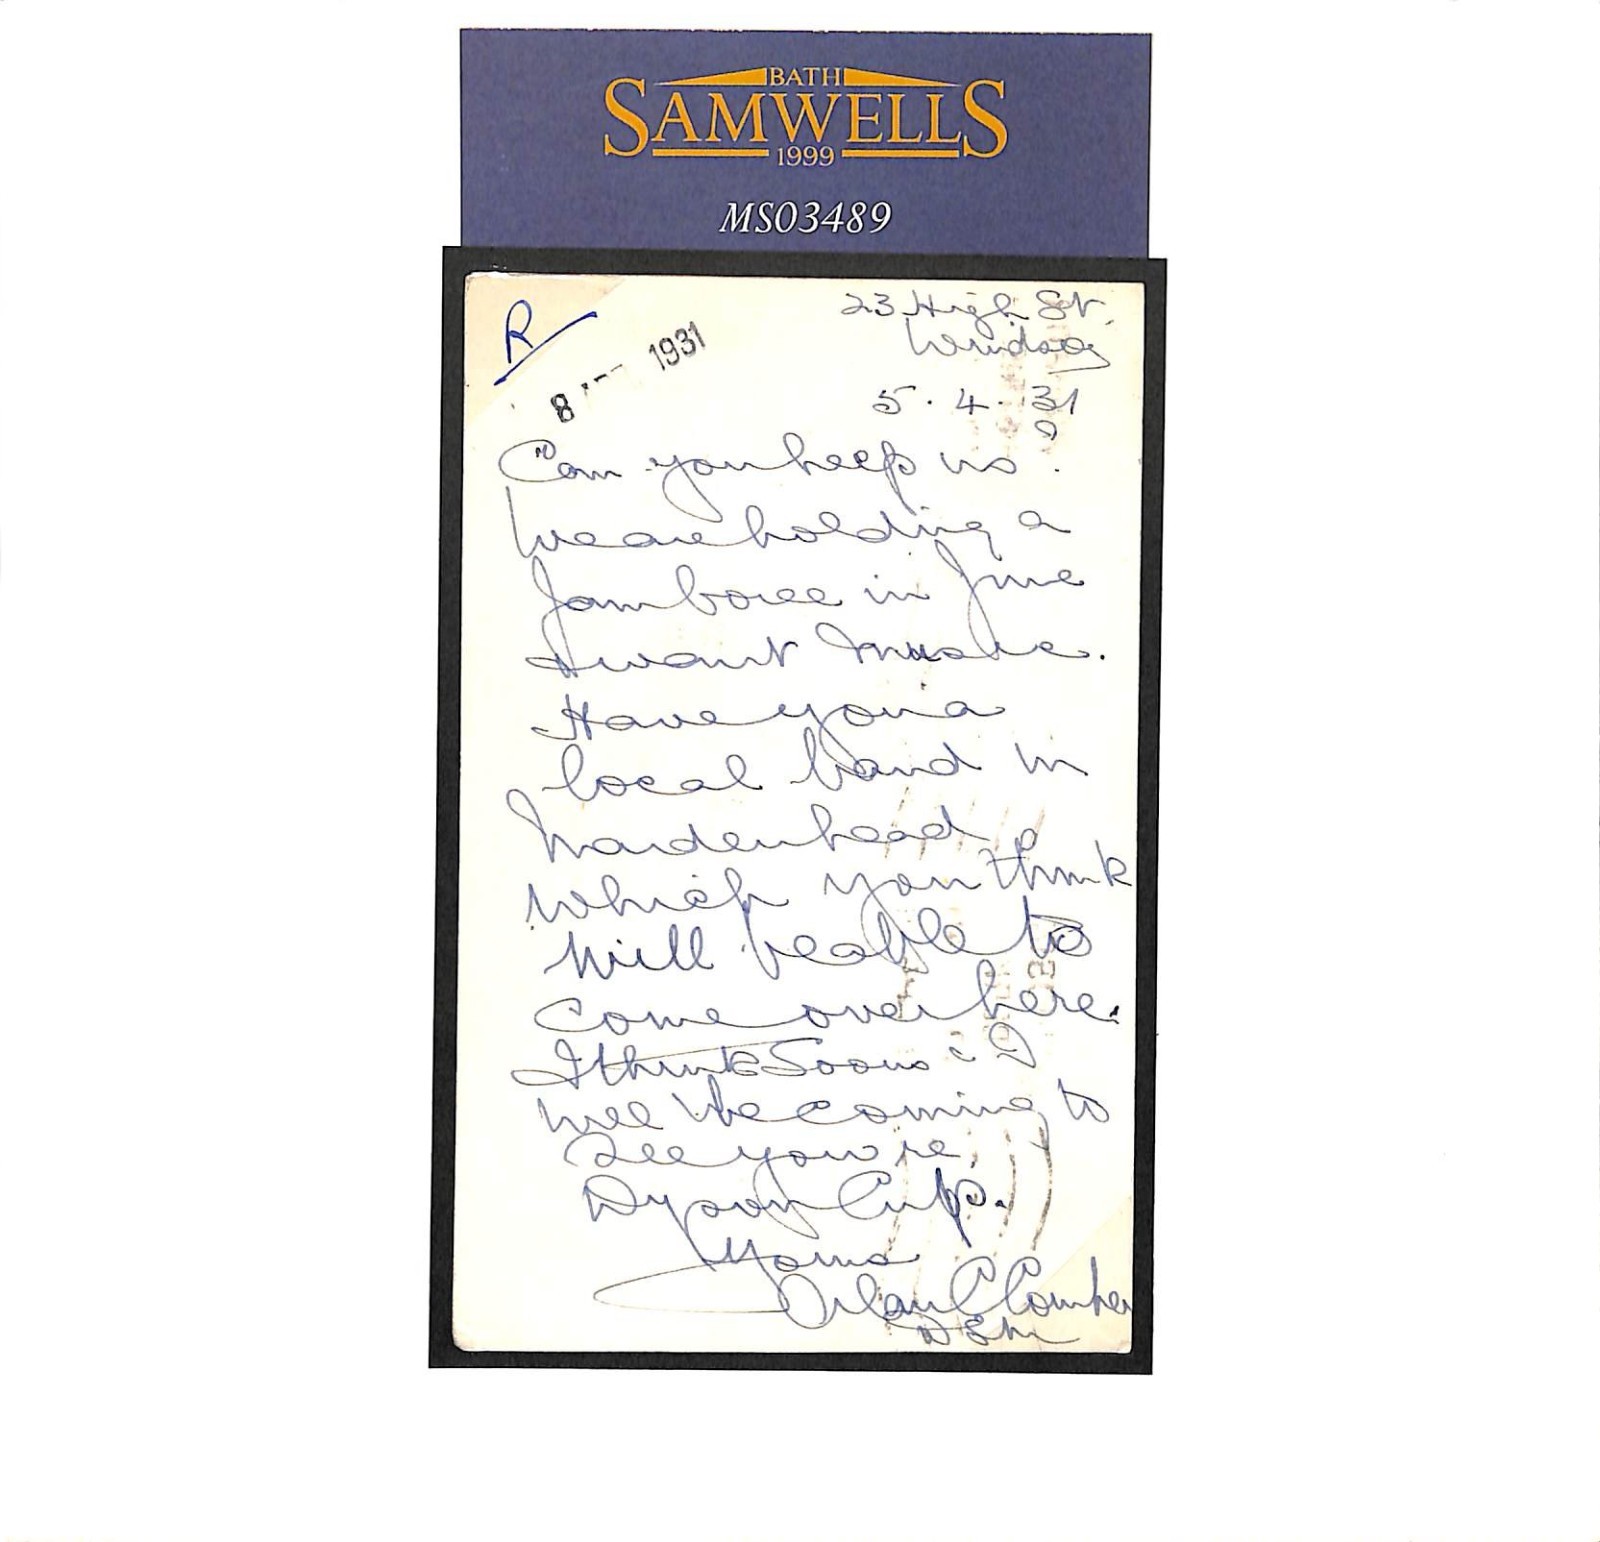 BATH
SAMWELLS
1999
MS03489
R
8 1931
23 High St.
Windsor
5.4.31
Can you help us?
We are holding a
Jamboree in June
& want music.
Have you a
local band in
Maidenhead
which you think
will be able to
come over here.
I think Soons & I
will be coming to
see you re
Dyson Cup.
Yours